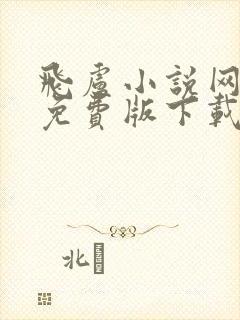 飛盧小説网
免費版下載
北